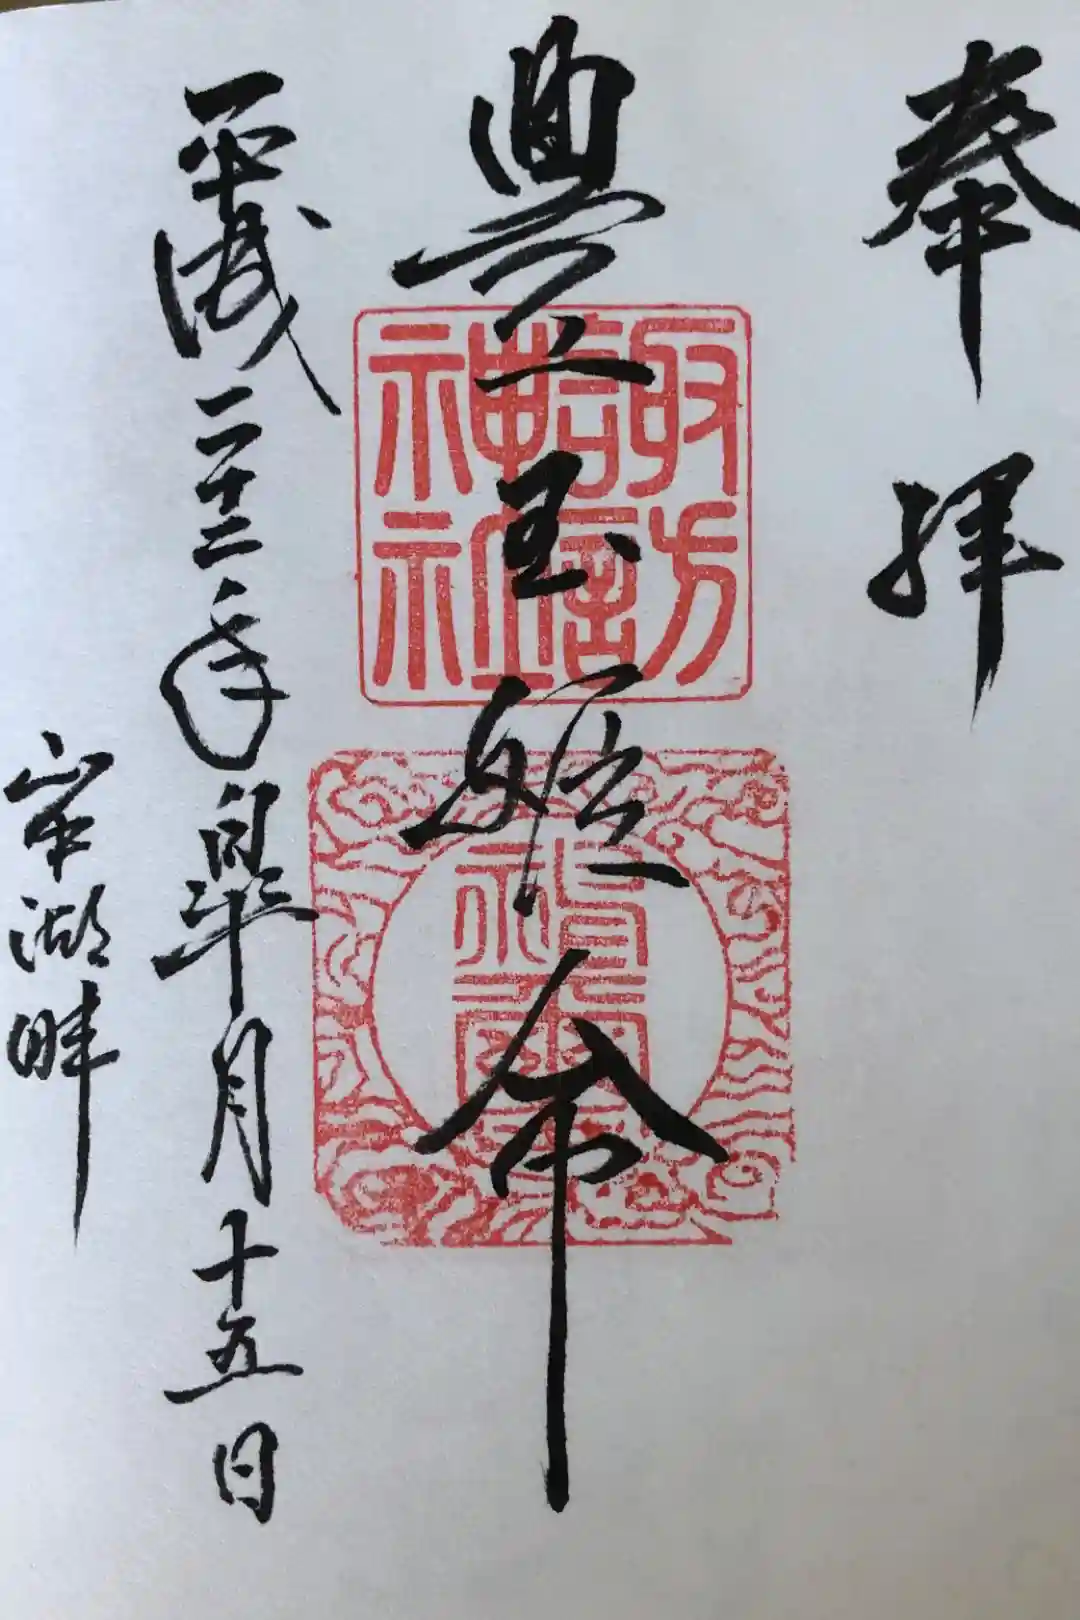 奉拝
豊玉姫命
諏訪神社
平成二十二年皐月十五日
山中湖畔